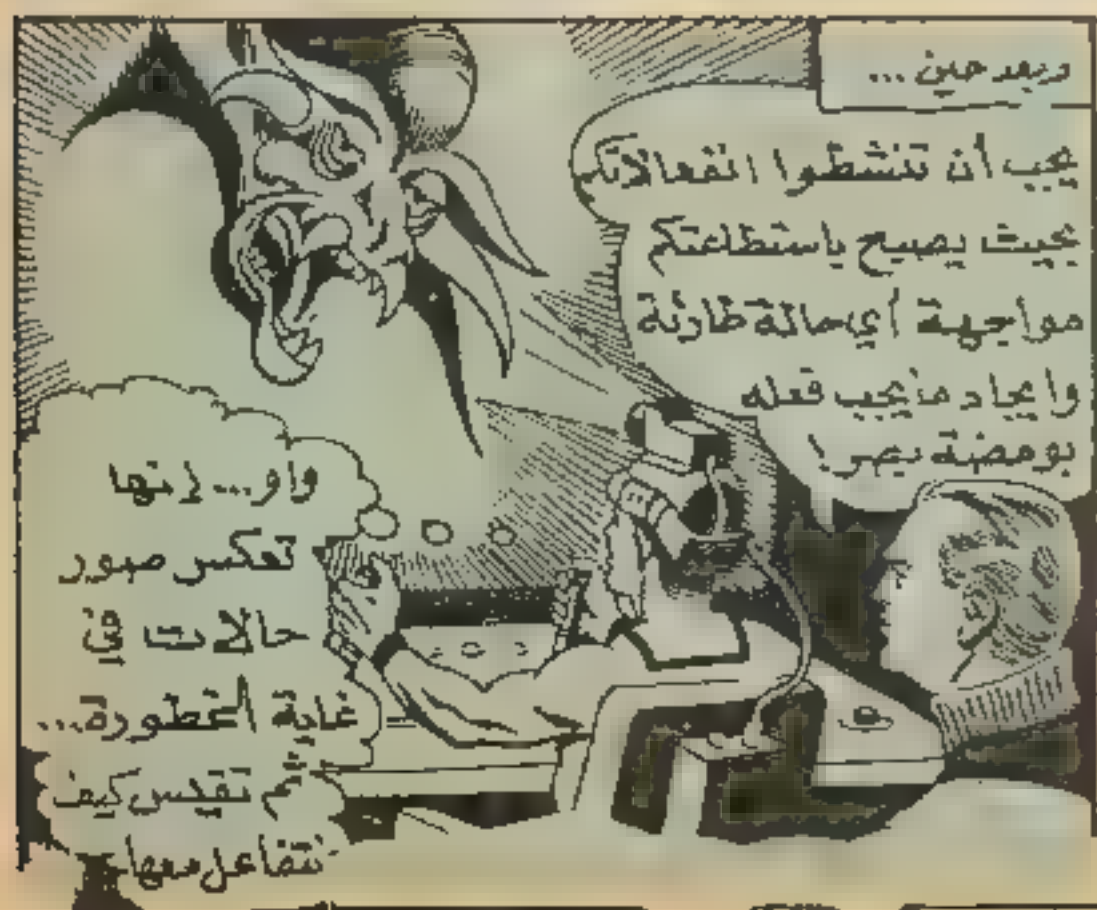 وبعد حين ...
يجب أن تنشطوا انفعالاتكم
بحيث يصبح باستطاعتكم
مواجهة أي حالة طارئة
وإيجاد ما يجب فعله
بومضة بصر!
واو... إنها
تعكس صور
حالات في
غاية الخطورة...
ثم تقيس كيف
نتفاعل معها